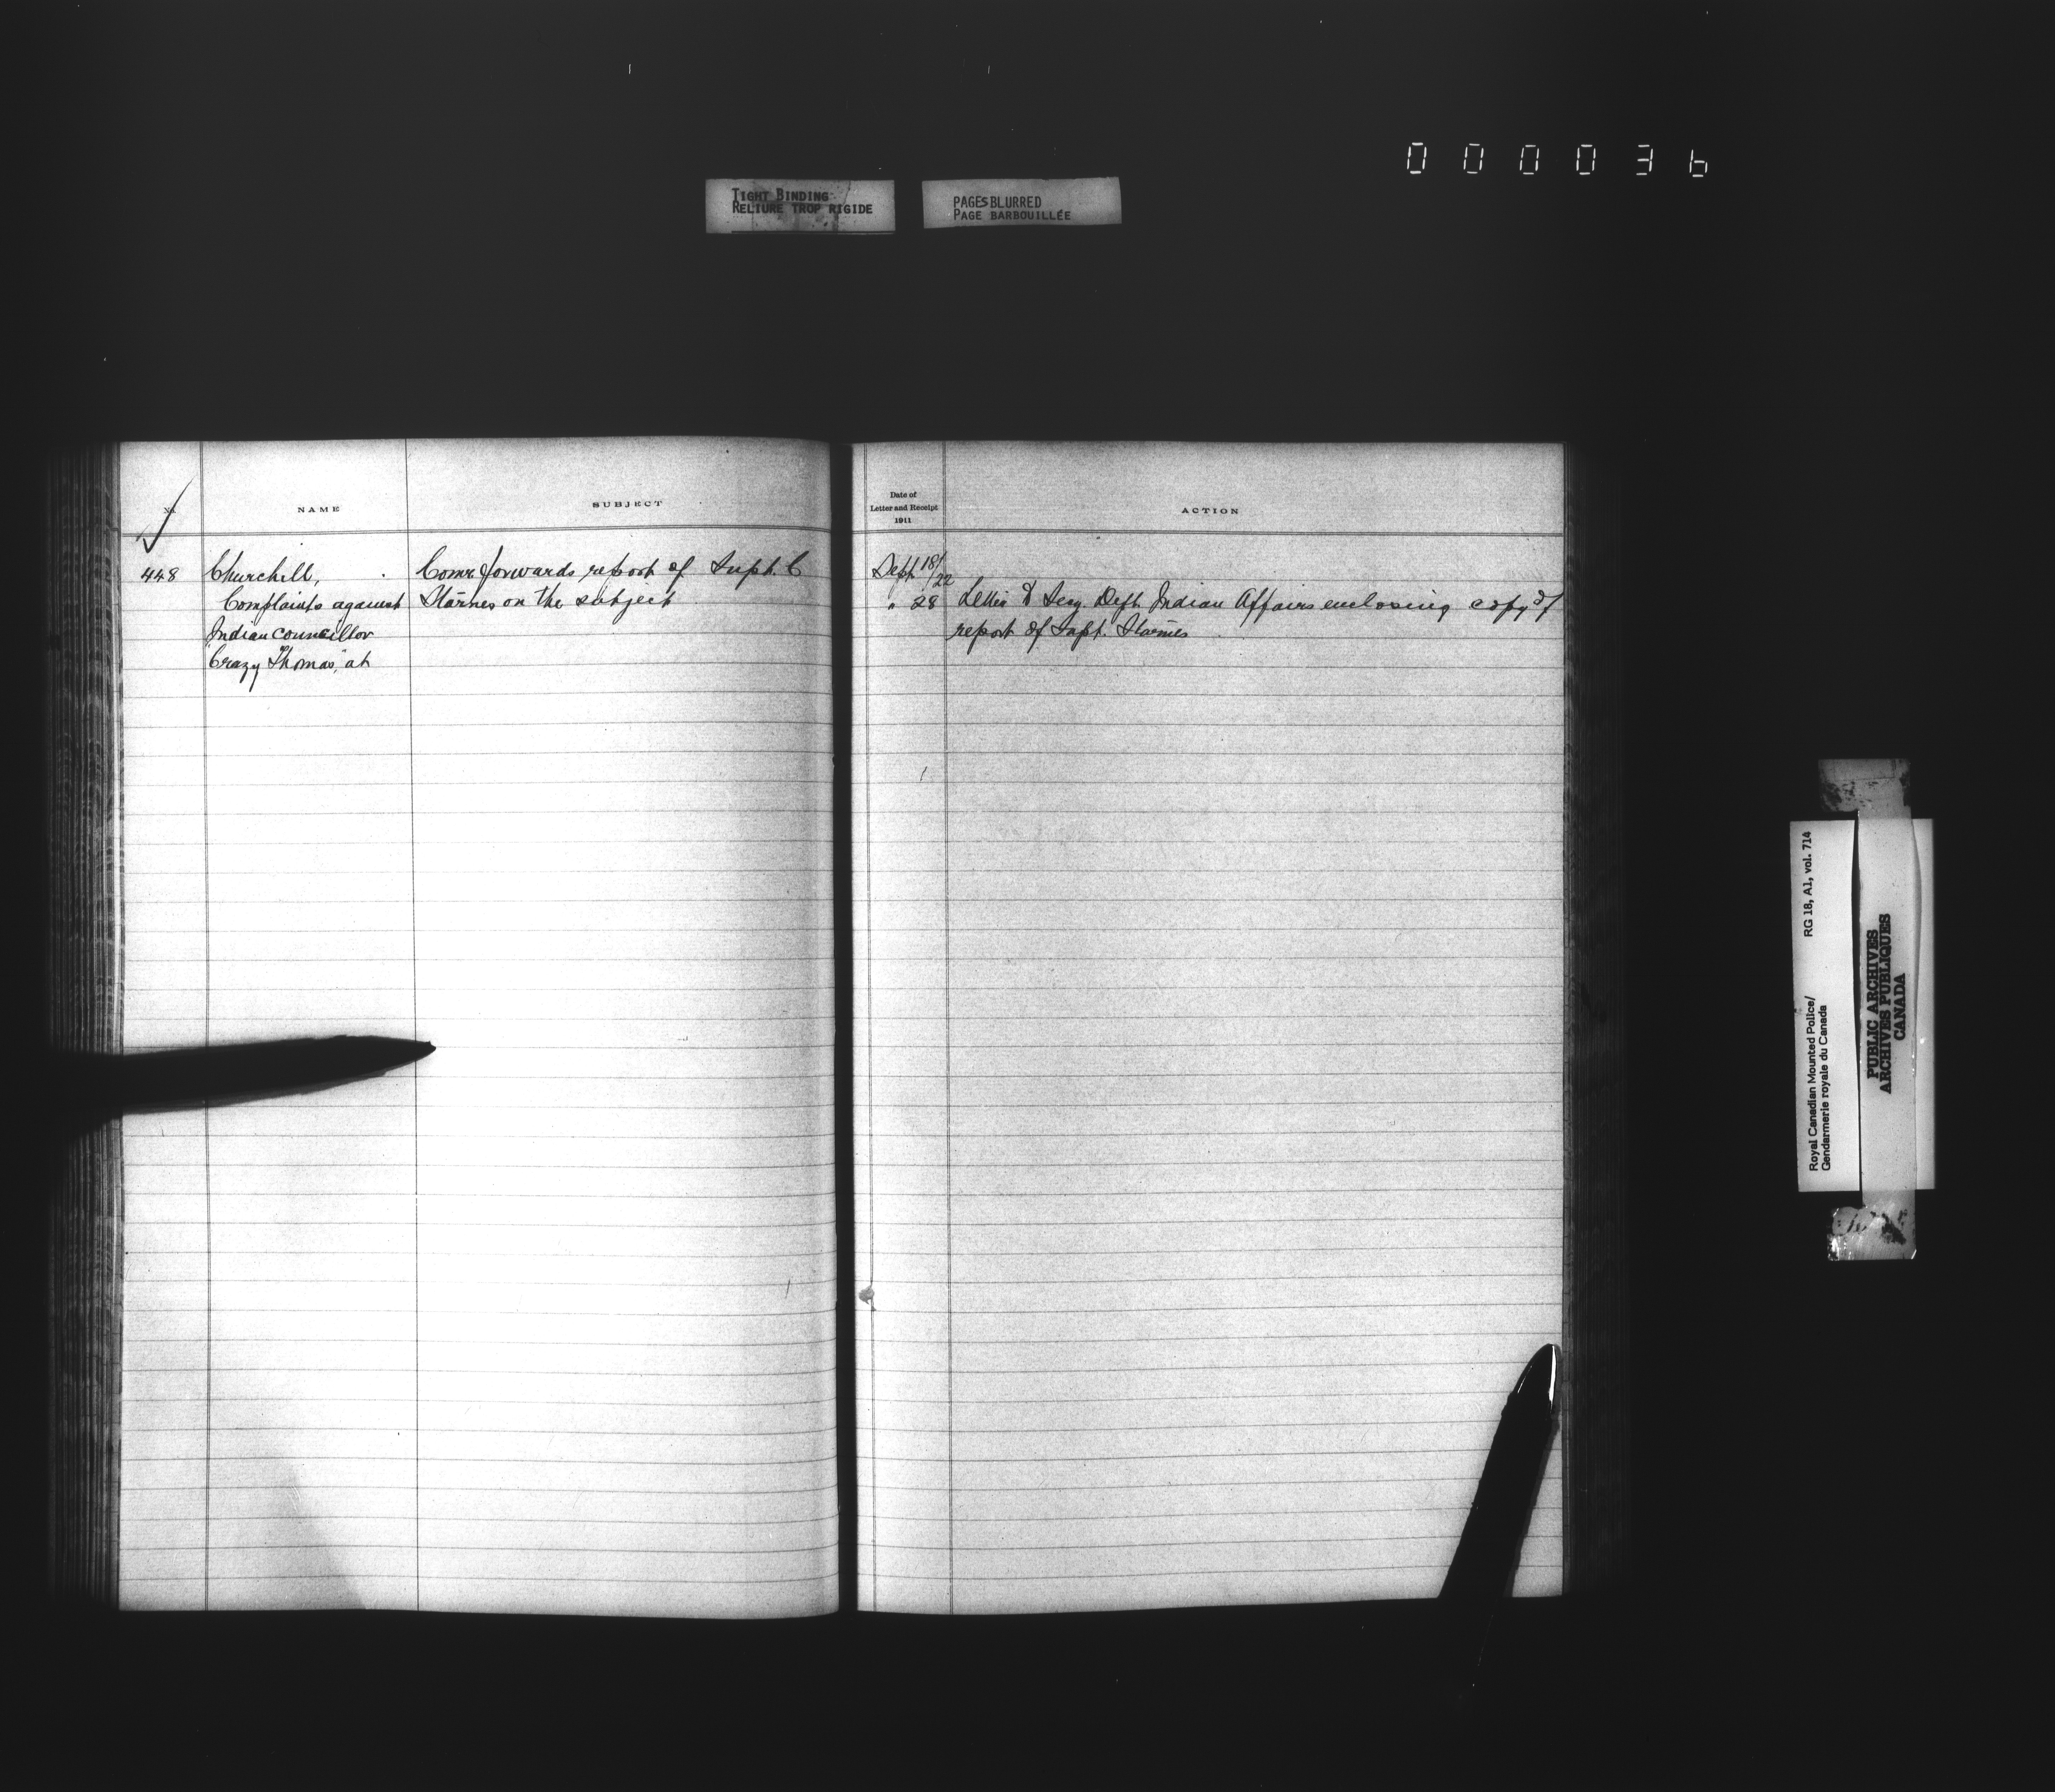 000036
TIGHT BINDING
RELIURE TROP RIGIDE
PAGES BLURRED
PAGE BARBOUILLÉE
No.
NAME
SUBJECT
448
Churchill,
Complaints against
Indian councillor
"Crazy Thomas," at
Comr. forwards report of Supt. C
Starnes on the subject
Date of
Letter and Receipt
1911
ACTION
Sept 18/22
" 28
Letter to Secy. Dept. Indian Affairs enclosing copy of
report of Supt. Starnes
Royal Canadian Mounted Police/ RG 18, A1, vol. 714
Gendarmerie royale du Canada
PUBLIC ARCHIVES
ARCHIVES PUBLIQUES
CANADA